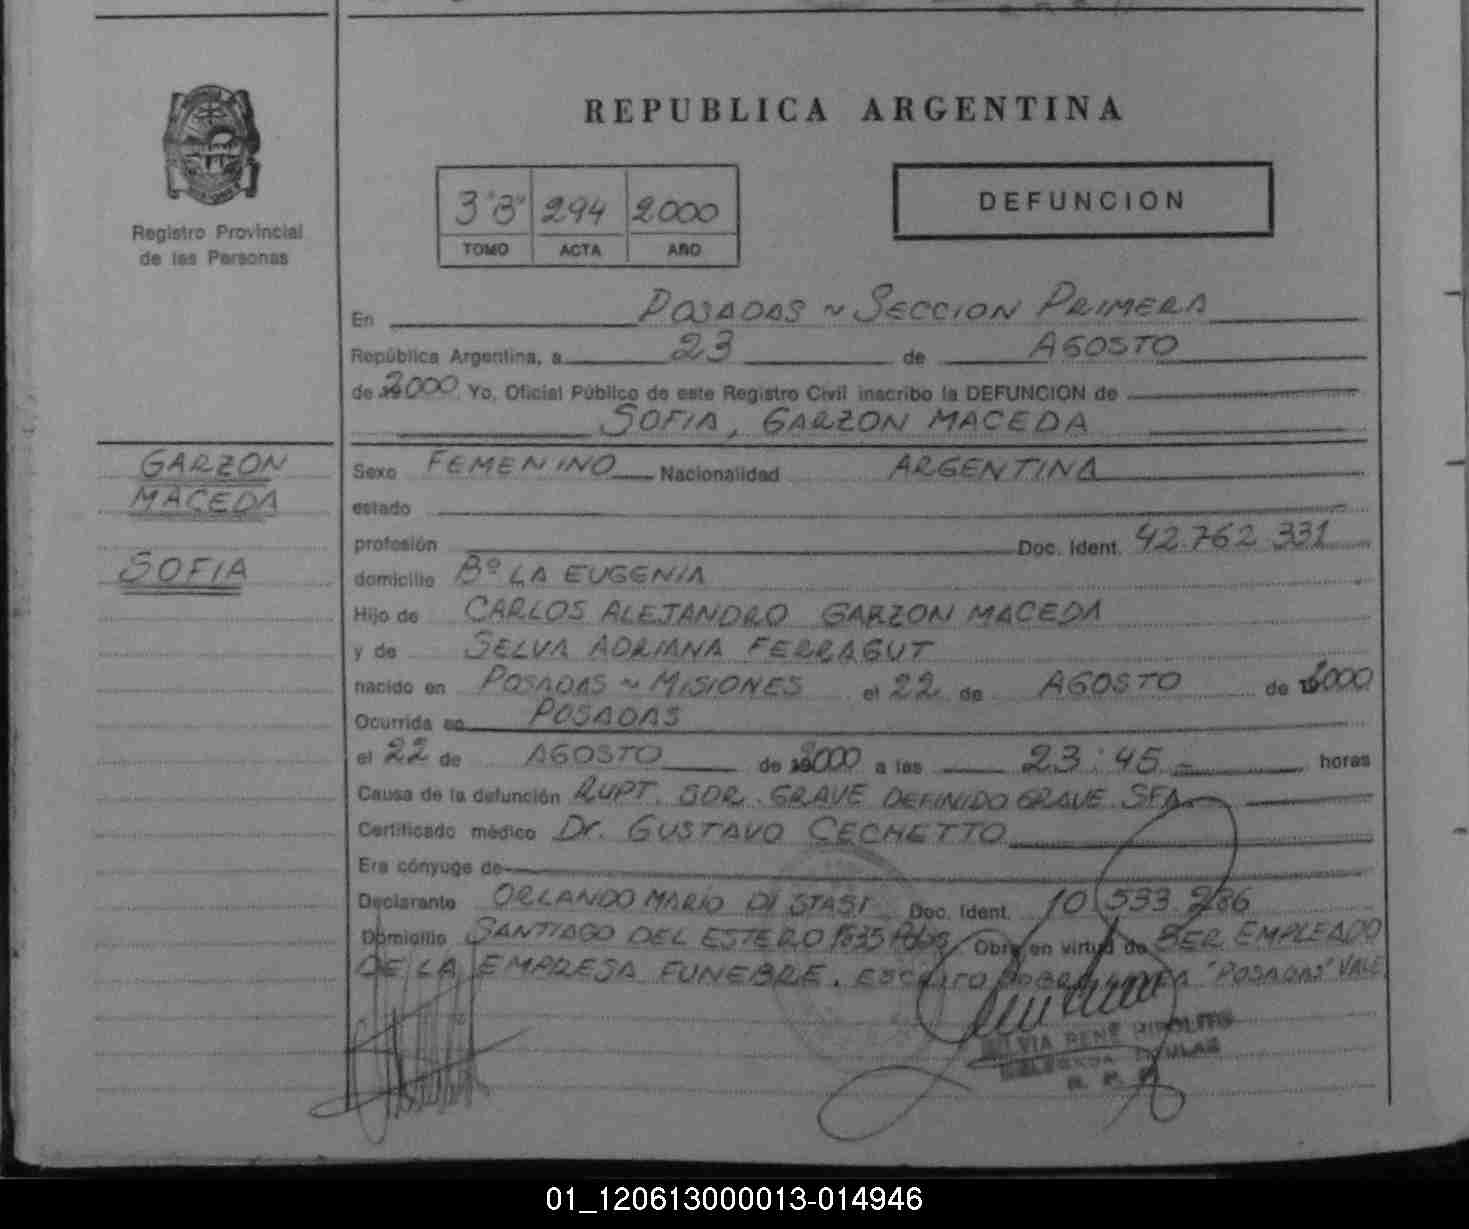 REPUBLICA ARGENTINA
3"B" 294 2000
TOMO ACTA AÑO
DEFUNCION
Registro Provincial
de las Personas
En POSADAS ~ SECCION PRIMERA
República Argentina, a 23 de AGOSTO
de 2000 Yo, Oficial Público de este Registro Civil inscribo la DEFUNCION de
SOFIA, GARZON MACEDA
GARZON
MACEDA
SOFIA
Sexo FEMENINO Nacionalidad ARGENTINA
estado
profesión Doc. Ident. 42.762.331
domicilio Bº LA EUGENIA
Hijo de CARLOS ALEJANDRO GARZON MACEDA
y de SELVA ADRIANA FERRAGUT
nacido en POSADAS ~ MISIONES el 22 de AGOSTO de 2000
Ocurrida en POSADAS
el 22 de AGOSTO de 2000 a las 23:45.- horas
Causa de la defunción RUPT. GRAVE DEFINIDO GRAVE. SFA
Certificado médico Dr. GUSTAVO CECHETTO
Era cónyuge de
Declarante ORLANDO MARIO DI STASI Doc. Ident. 10.533.286
Domicilio SANTIAGO DEL ESTERO 1535 Pdas Obra en virtud de SER EMPLEADO
DE LA EMPRESA FUNEBRE. ESCRITO "POSADAS" VALE
RENE HIPOLITO
TITULAR
R. P. P.
01_120613000013-014946